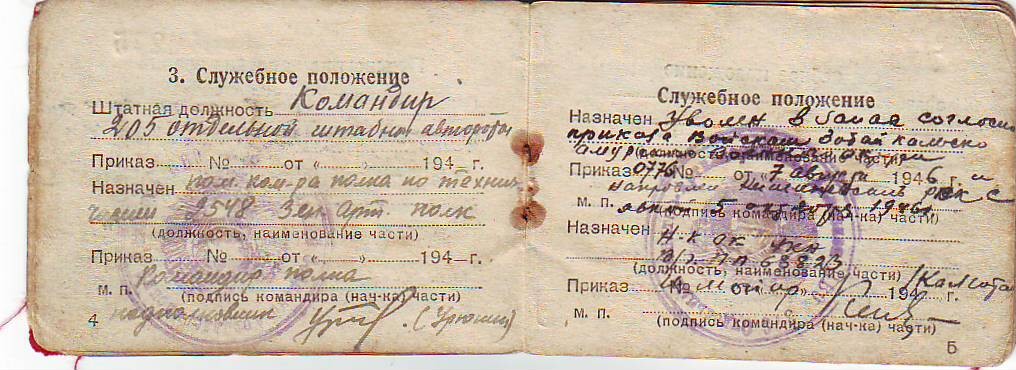 3. Служебное положение
Штатная должность Командир
205 отдельной штабной автороты
Приказ № от «» 194 г.
Назначен пом. ком-ра полка по технич.
части 2548 Зен Арт. полк
(должность, наименование части)
Приказ № от «» 194 г.
Командир полка
м. п.
(подпись командира (нач-ка) части)
подполковник (Урюпин)
4
Служебное положение
Назначен Уволен В запас согласно
приказа Войскам Забайкальско
Амурского
(должность, наименование части)
Приказ 046 № от «7 августа 1946 г. и
направлен РВК с
м. п. явкой 5 октября 1946г
(подпись командира (нач-ка) части)
Назначен Н-к ОК
в/ч пп 63823
(должность, наименование части)
Приказ № от 194 г.
м. п.
(подпись командира (нач-ка) части)
5